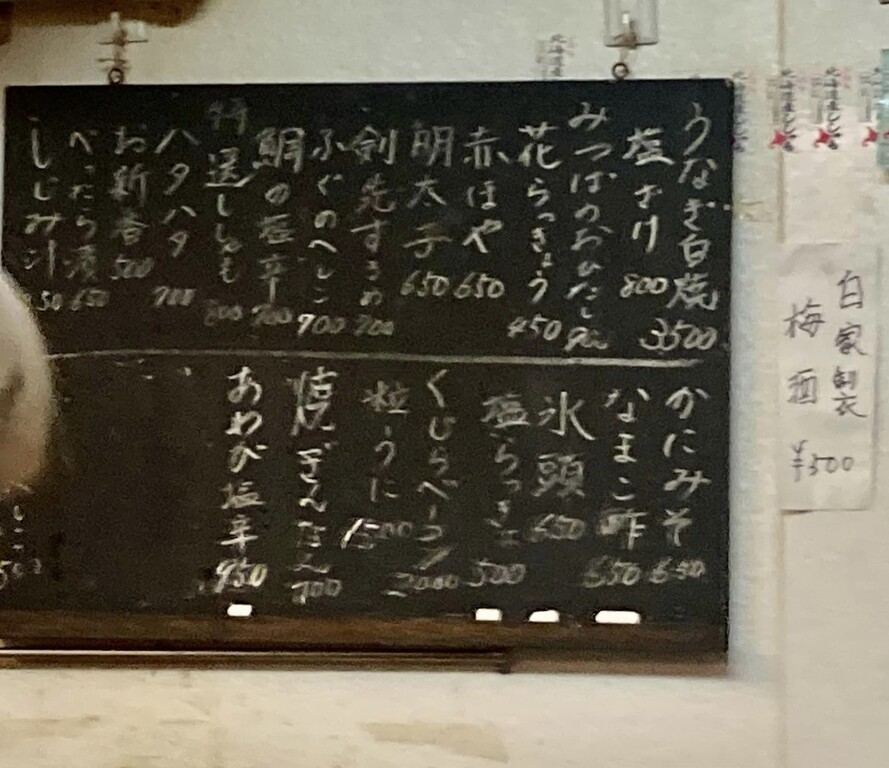 うなぎ白焼 3500
塩ざけ 800
みつばのおひたし
花らっきょう 450
赤ほや 650
明太子 650
剣先するめ 700
ふぐのへしこ 700
鯛の塩辛 700
特選ししゃも 800
ハタハタ 700
お新香 500
べったら漬 650
しじみ汁
かにみそ 650
なまこ酢 650
氷頭 650
塩らっきょ 500
くじらベーコン 2000
粒うに 1500
焼ぎんなん 700
あめが塩辛 950
自家製
梅酒
¥500